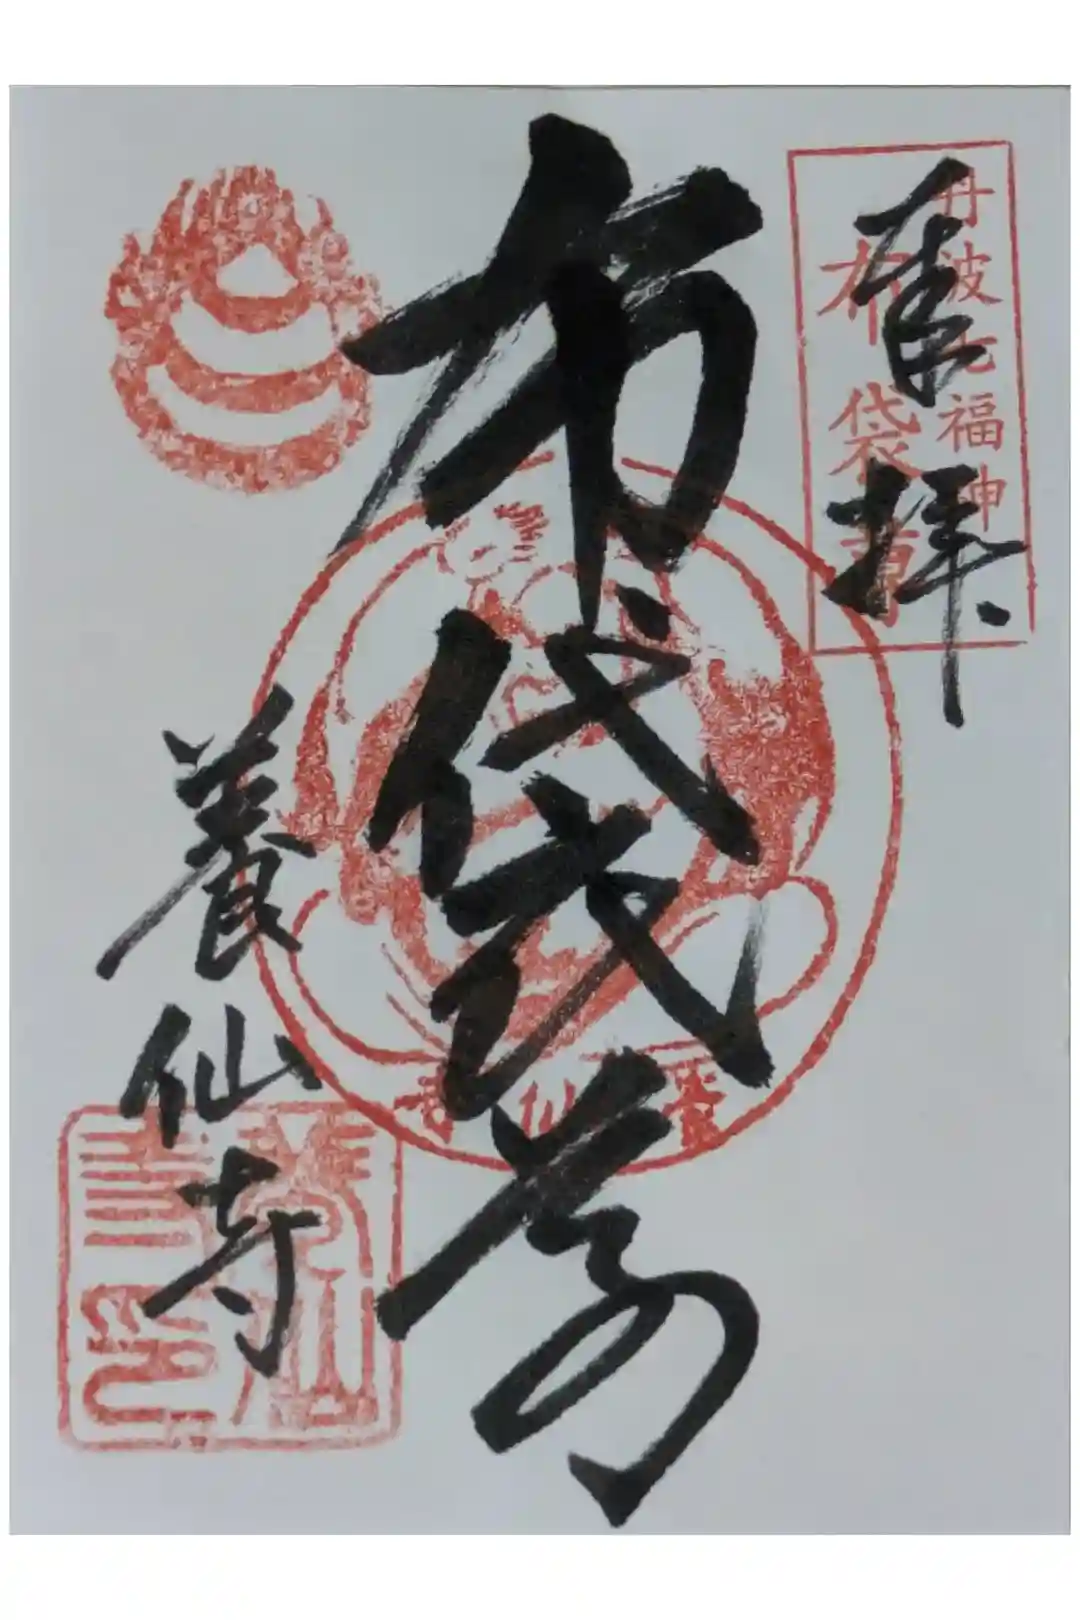 奉拝
丹波七福神
布袋尊
布袋尊
養仙寺
養仙寺